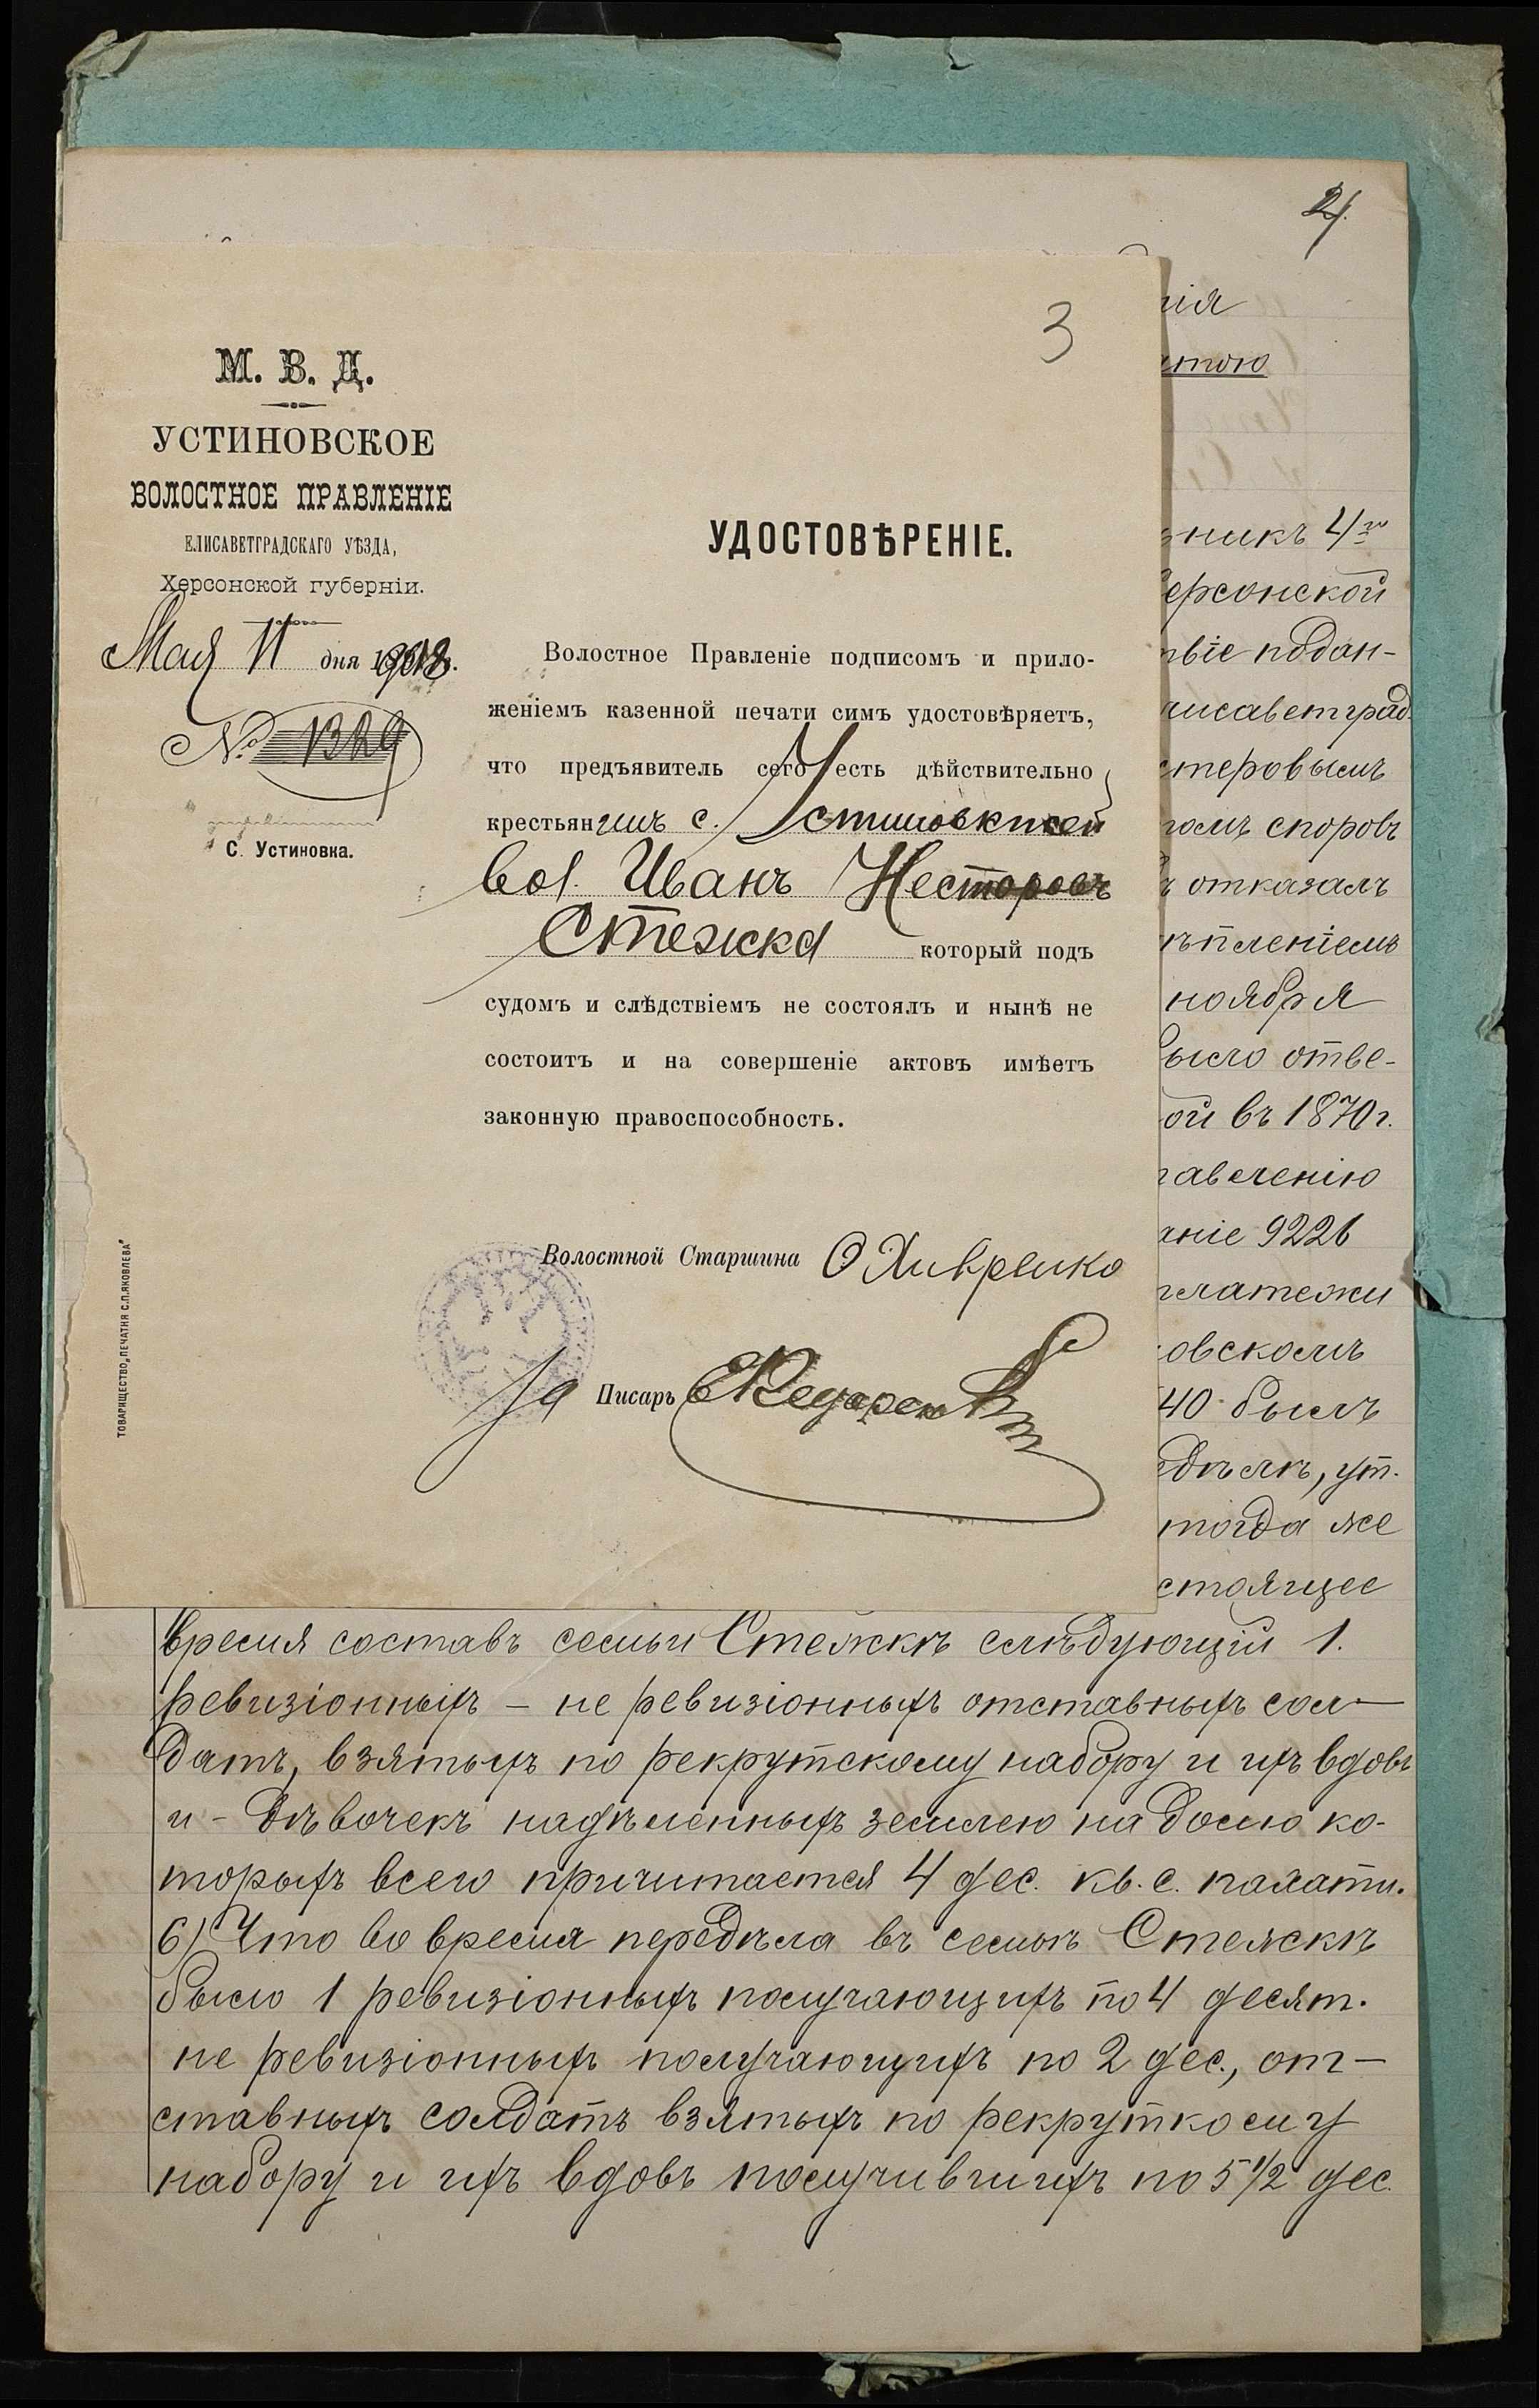 2.
3
М. В. Д.
УСТИНОВСКОЕ
ВОЛОСТНОЕ ПРАВЛЕНІЕ
ЕЛИСАВЕТГРАДСКАГО УѢЗДА,
Херсонской губерніи.
Мая 11 дня
№ 1329
С. Устиновка.
УДОСТОВѢРЕНІЕ.
Волостное Правленіе подписомъ и прило-
женіемъ казенной печати симъ удостовѣряетъ,
что предъявитель сего есть дѣйствительно
крестьянинъ с.
вол. Иванъ Несторовъ
Стежка который подъ
судомъ и слѣдствіемъ не состоялъ и нынѣ не
состоитъ и на совершеніе актовъ имѣетъ
законную правоспособность.
Волостной Старшина
За Писарь
ТОВАРИЩЕСТВО „ПЕЧАТНЯ С.П.ЯКОВЛЕВА"
нія
атою
никъ 4го
ерсонской
твіе подан-
лисаветград
стеровымъ
номъ споровъ
отказалъ
ѣпленіемъ
ноября
было отве-
ой въ 1870г.
авленію
аніе 9226
платежи
овскомъ
40 былъ
дѣлъ, ут.
тогда же
стоящее
время составъ семьи Стежкѣ слѣдующій 1.
ревизіонныхъ - не ревизіонныхъ отставныхъ сол-
датъ, взятыхъ по рекрутскому набору и ихъ вдовъ
и - дѣвочекъ надѣленныхъ землею на долю ко-
торыхъ всего причитается 4 дес. кв. с. пахати.
6) Что во время передѣла въ семьѣ Стежкѣ
было 1 ревизіонныхъ получающихъ по 4 десят.
не ревизіонныхъ получающихъ по 2 дес., от-
ставныхъ солдатъ взятыхъ по рекруткому
набору и ихъ вдовъ получившихъ по 5 1/2 дес.